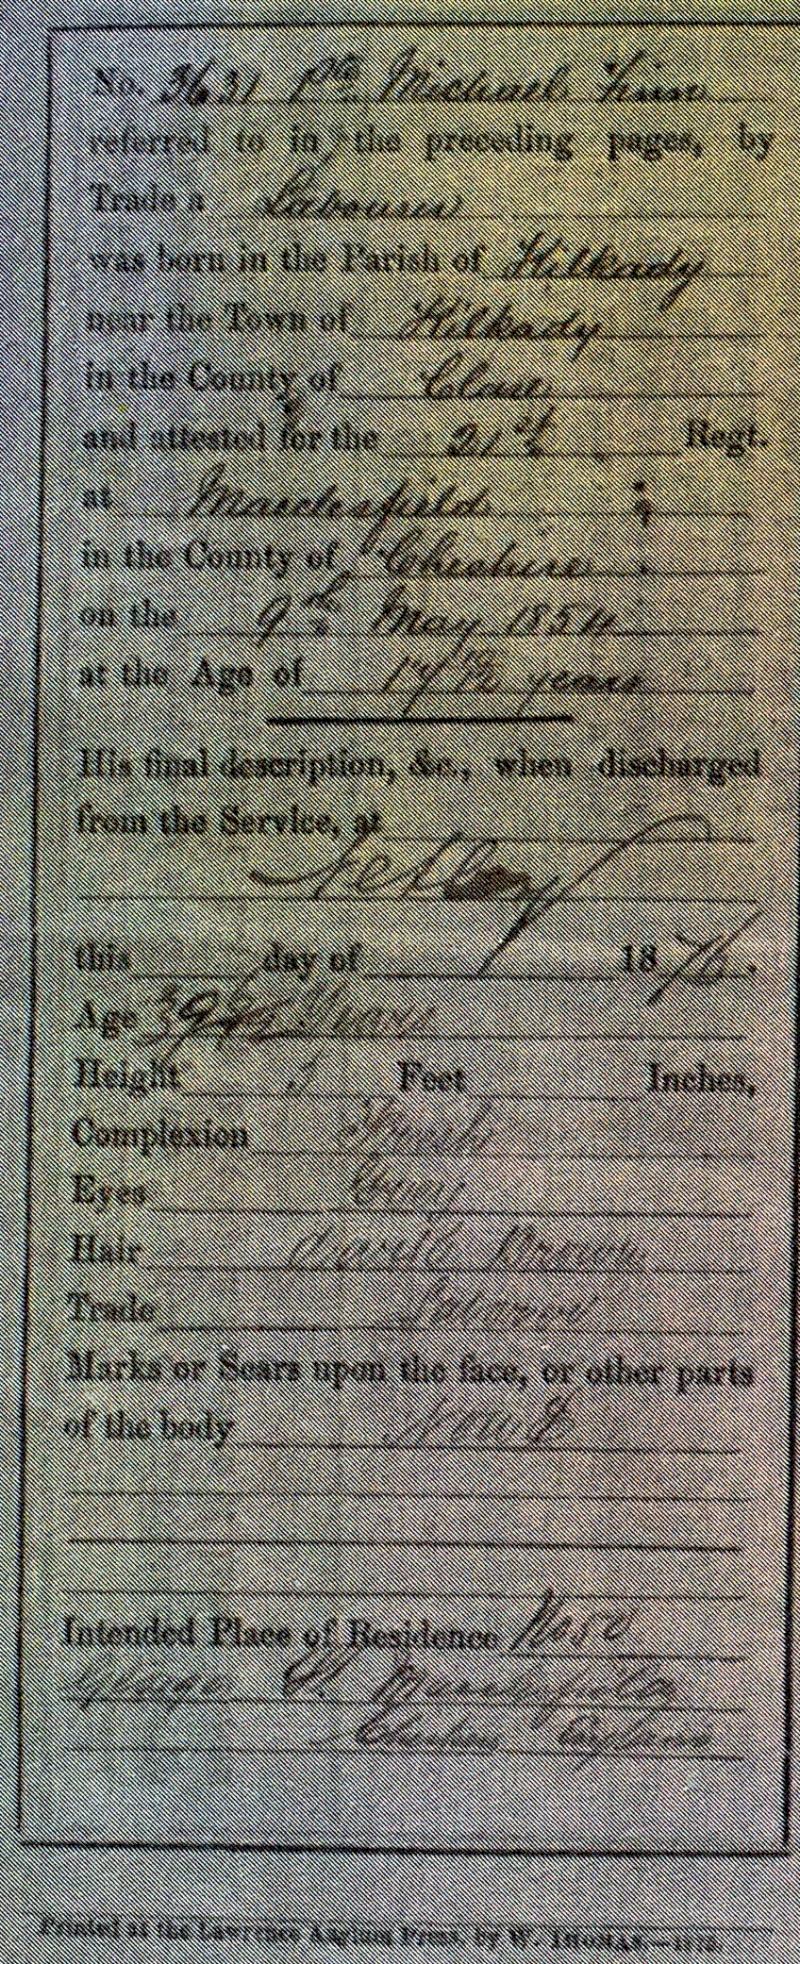 No. 3631 Pte Michael
referred to in the preceding pages, by
Trade a Labourer
was born in the Parish of Kilkady
near the Town of Kilkady
in the County of Clare
and attested for the 21st Regt.
at Macclesfield
in the County of Cheshire
on the 9th May 1854
at the Age of years
His final description, &c., when discharged
from the Service, at
Netley
this day of 1876.
Age 39 Years
Height 5 Feet Inches,
Complexion Fresh
Eyes Grey
Hair Dark Brown
Trade Labourer
Marks or Scars upon the face, or other parts
of the body None
Intended Place of Residence No 50
George St Macclesfield
Cheshire England
Printed at the Lawrence Asylum Press, by W. THOMAS.—